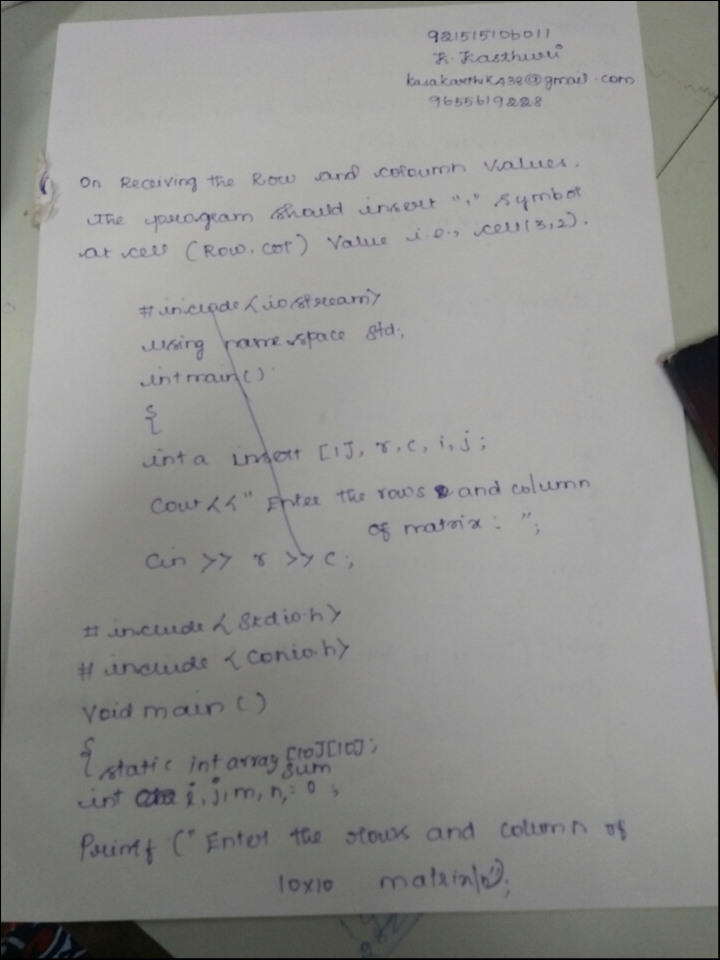 921515106011
K. Kasthuri
kasakarthika32@gmail.com
9655619228
On Receiving the Row and coloumn Values.
The program should insert "," Symbol
at cell (Row, Col) Value i.e., cell(3,2).
#include <iostream>
using namespace std;
int main()
{
int a insert [1], r, c, i, j;
Cout << " Enter the rows and column
of matrix : ";
Cin >> r >> c;
#include <stdio.h>
#include <conio.h>
Void main()
{
static int array [10][10];
int i, j, m, n, sum = 0;
Printf (" Enter the rows and column of
10x10 matrix\n");